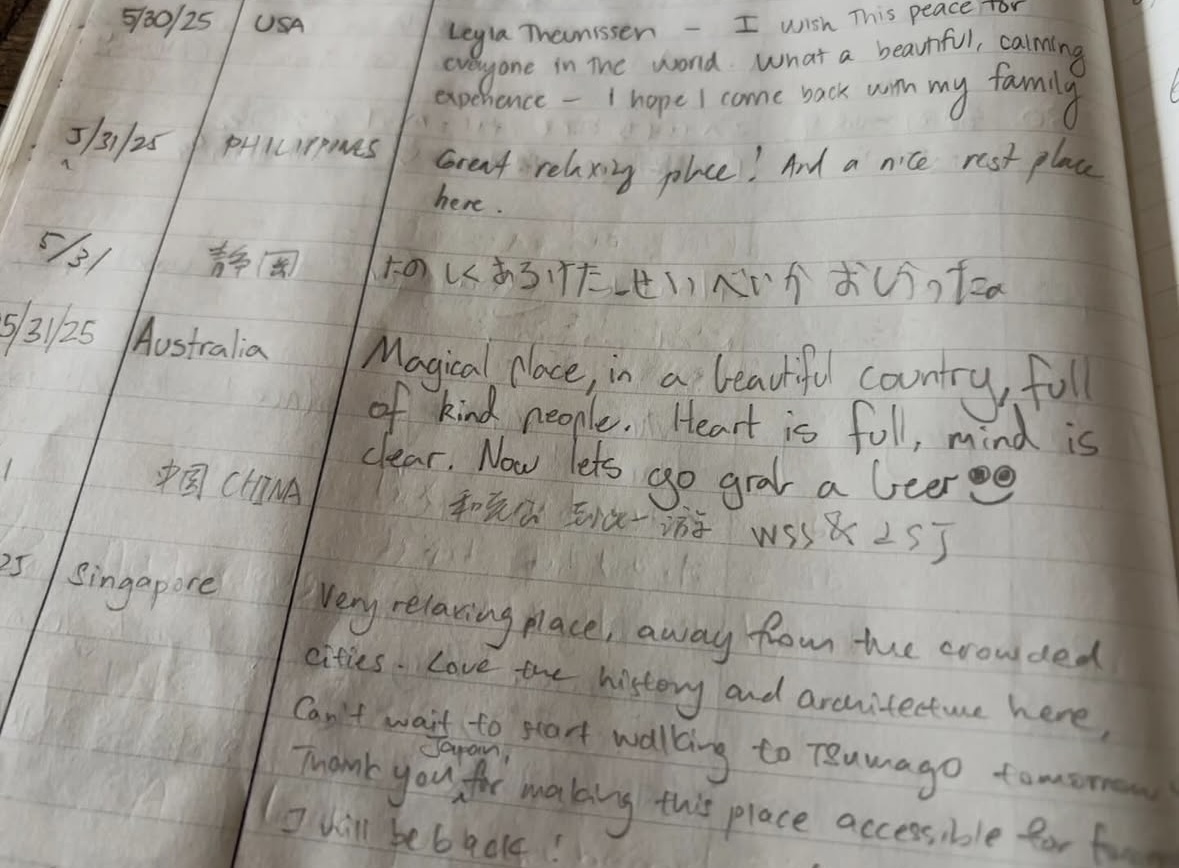 5/30/25 USA Leyla Theunissen – I wish This peace for
everyone in the world. What a beautiful, calming
experience – I hope I come back with my family
5/31/25 PHILIPPINES Great relaxing place! And a nice rest place
here.
5/31 静岡 たのしくあるけた せいいべいが おいしかった
5/31/25 Australia Magical place, in a beautiful country, full
of kind people. Heart is full, mind is
clear. Now lets go grab a beer
中国 CHINA 到此一游 WSS & LSJ
25 Singapore Very relaxing place, away from the crowded
cities. Love the history and architecture here,
Can't wait to start walking to Tsumago tomorrow
Thank you Japan, for making this place accessible for
I will be back!